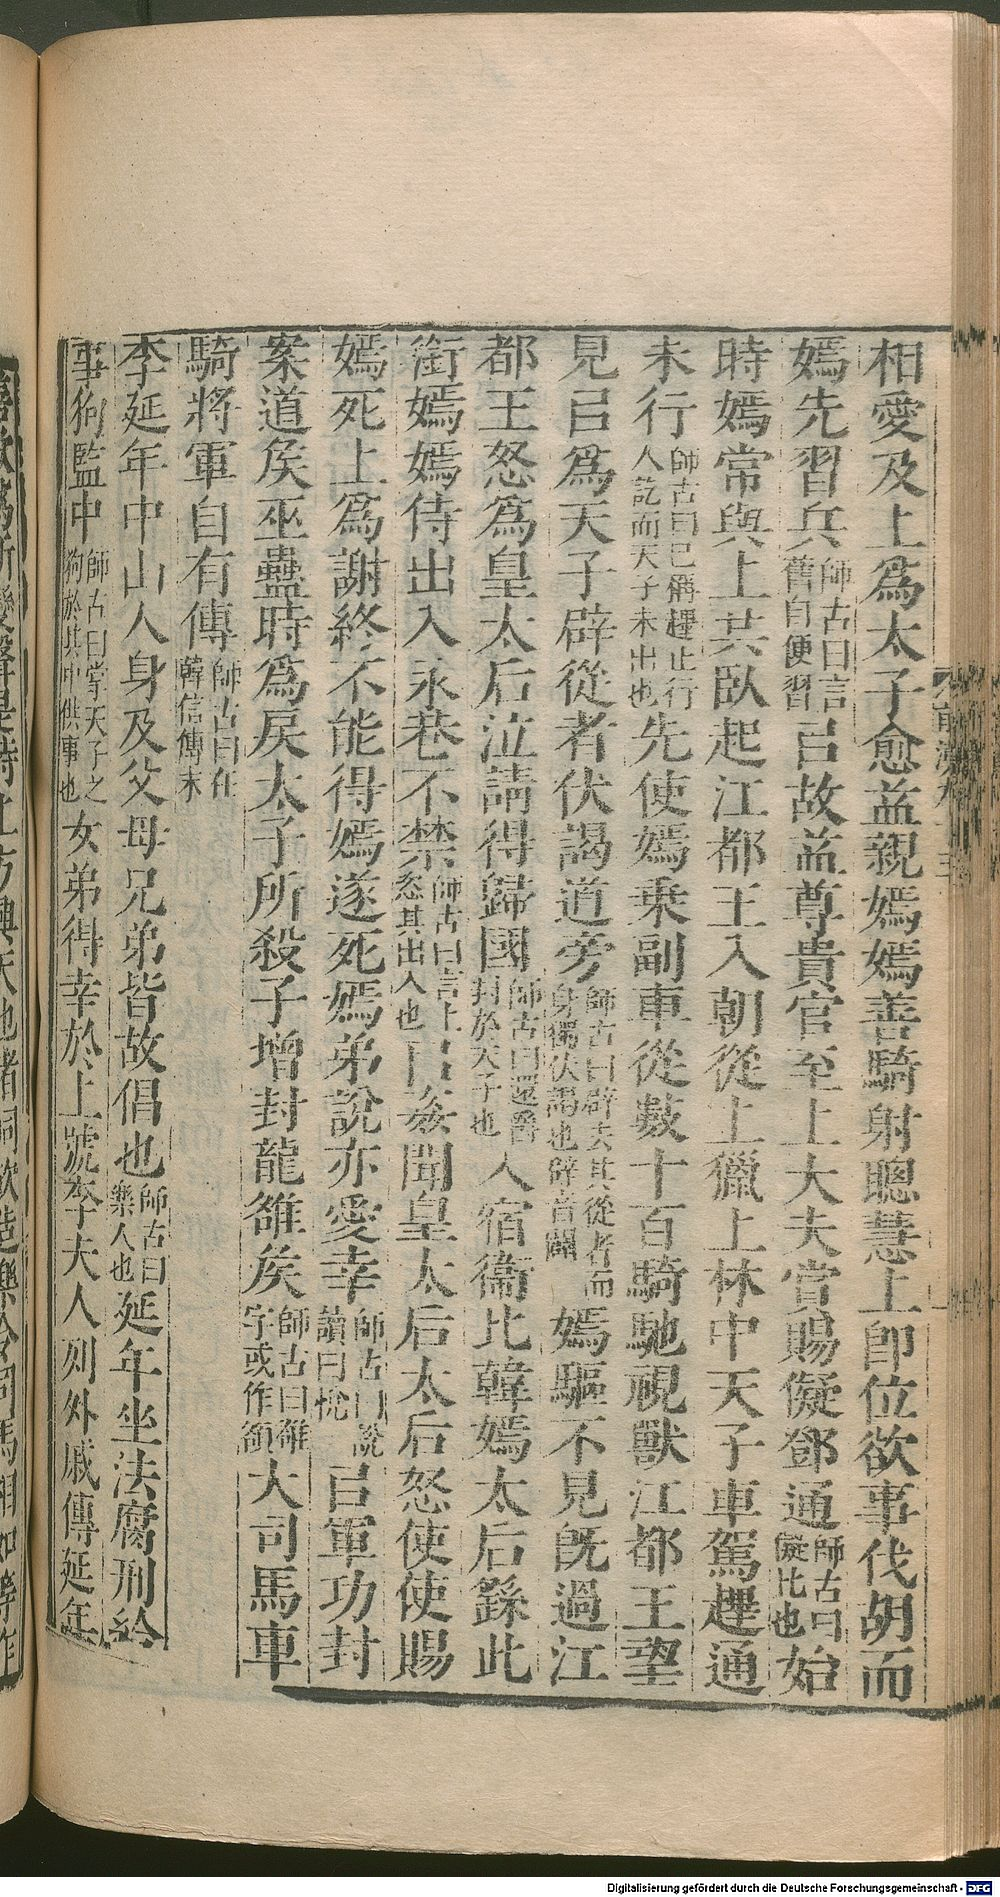 相愛及上爲太子愈益親嫣嫣善騎射聰慧上卽位欲事伐胡而
嫣先習兵師古曰言舊自便習㠯故益尊貴官至上大夫賞賜儗鄧通師古曰儗比也始
時嫣常與上共臥起江都王入朝從上獵上林中天子車駕趩通
未行師古曰已稱趩止行人訖而天子未出也先使嫣乗副車從數十百騎馳視獸江都王望
見㠯爲天子辟從者伏謁道旁師古曰辟去其從者而身獨伏謁也辟音闢嫣驅不見旣過江
都王怒爲皇太后泣請得歸國師古曰還爵封於天子也入宿衞比韓嫣太后繇此
銜嫣嫣侍出入永巷不禁師古曰言上恣其出入也㠯姦聞皇太后太后怒使使賜
嫣死上爲謝終不能得嫣遂死嫣弟說亦愛幸師古曰說讀曰悅㠯軍功封
案道矦巫蠱時爲戾太子所殺子增封龍雒矦師古曰雒字或作頟大司馬車
騎將軍自有傳師古曰在韓信傳末
李延年中山人身及父母兄弟皆故倡也師古曰樂人也延年坐法腐刑給
事狗監中師古曰掌天子之狗於其中供事也女弟得幸於上號李夫人列外戚傳延年